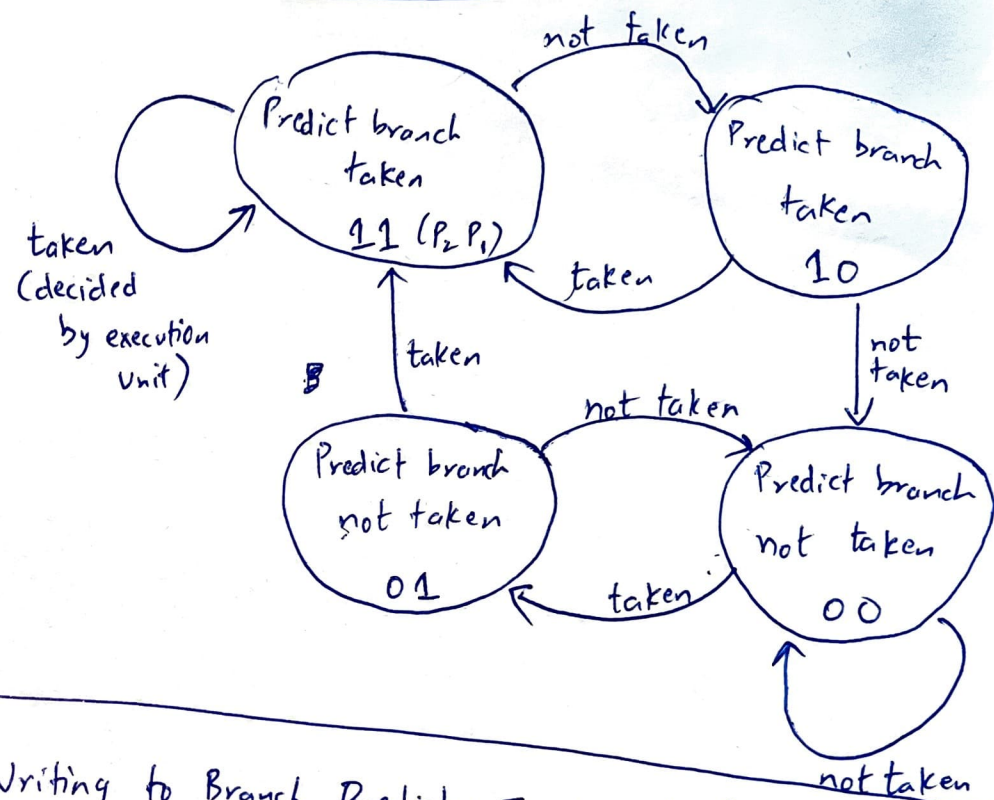 not taken
Predict branch
taken
11 (P2 P1)
Predict branch
taken
10
taken
(decided
by execution
unit)
taken
not
taken
taken
not taken
Predict branch
not taken
01
Predict branch
not taken
00
taken
not taken
Writing to Branch